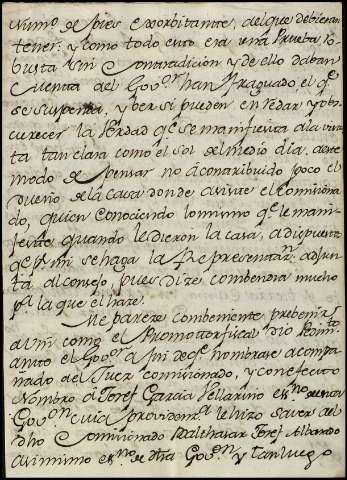 Num.o de Pies exorbitante, del que debieran
tener: y como todo esto era una Prueba ro-
busta sin Contradicion, y de ello daban
Cuenta del Gov.on han fraguado el q.e
se suspenda, y ver si pueden enrredar, y obs-
curecer la Verdad q.e se manifiesta a la vis-
ta tan clara como el sol del medio dia, a este
modo de Pensar no a contribuido poco el
Dueño de la casa donde avisite el Comisiona-
do, quien conociendo lo mismo q.e le mani-
festè, quando le dieron la casa, a dispuesto
q.e p.r mi se haga la Representaz.n adjun-
ta al consejo, pues dize combendria mucho
p.a la que el hare.
Me pareze combeniente prebenir
a Vm como el Promottor fiscal dio Pedim.to
ante el Gov.or a fin de q.e nombrase acompa-
nado del Juez comisionado, y con efecto
Nombro a Josef Garcia Vellarino es.no de esta
Gov.on cuia provident.a le hizo saver al
dho Comisionado Balthasar Josef Albarado
asimismo es.no de dha Gov.on y tan luego